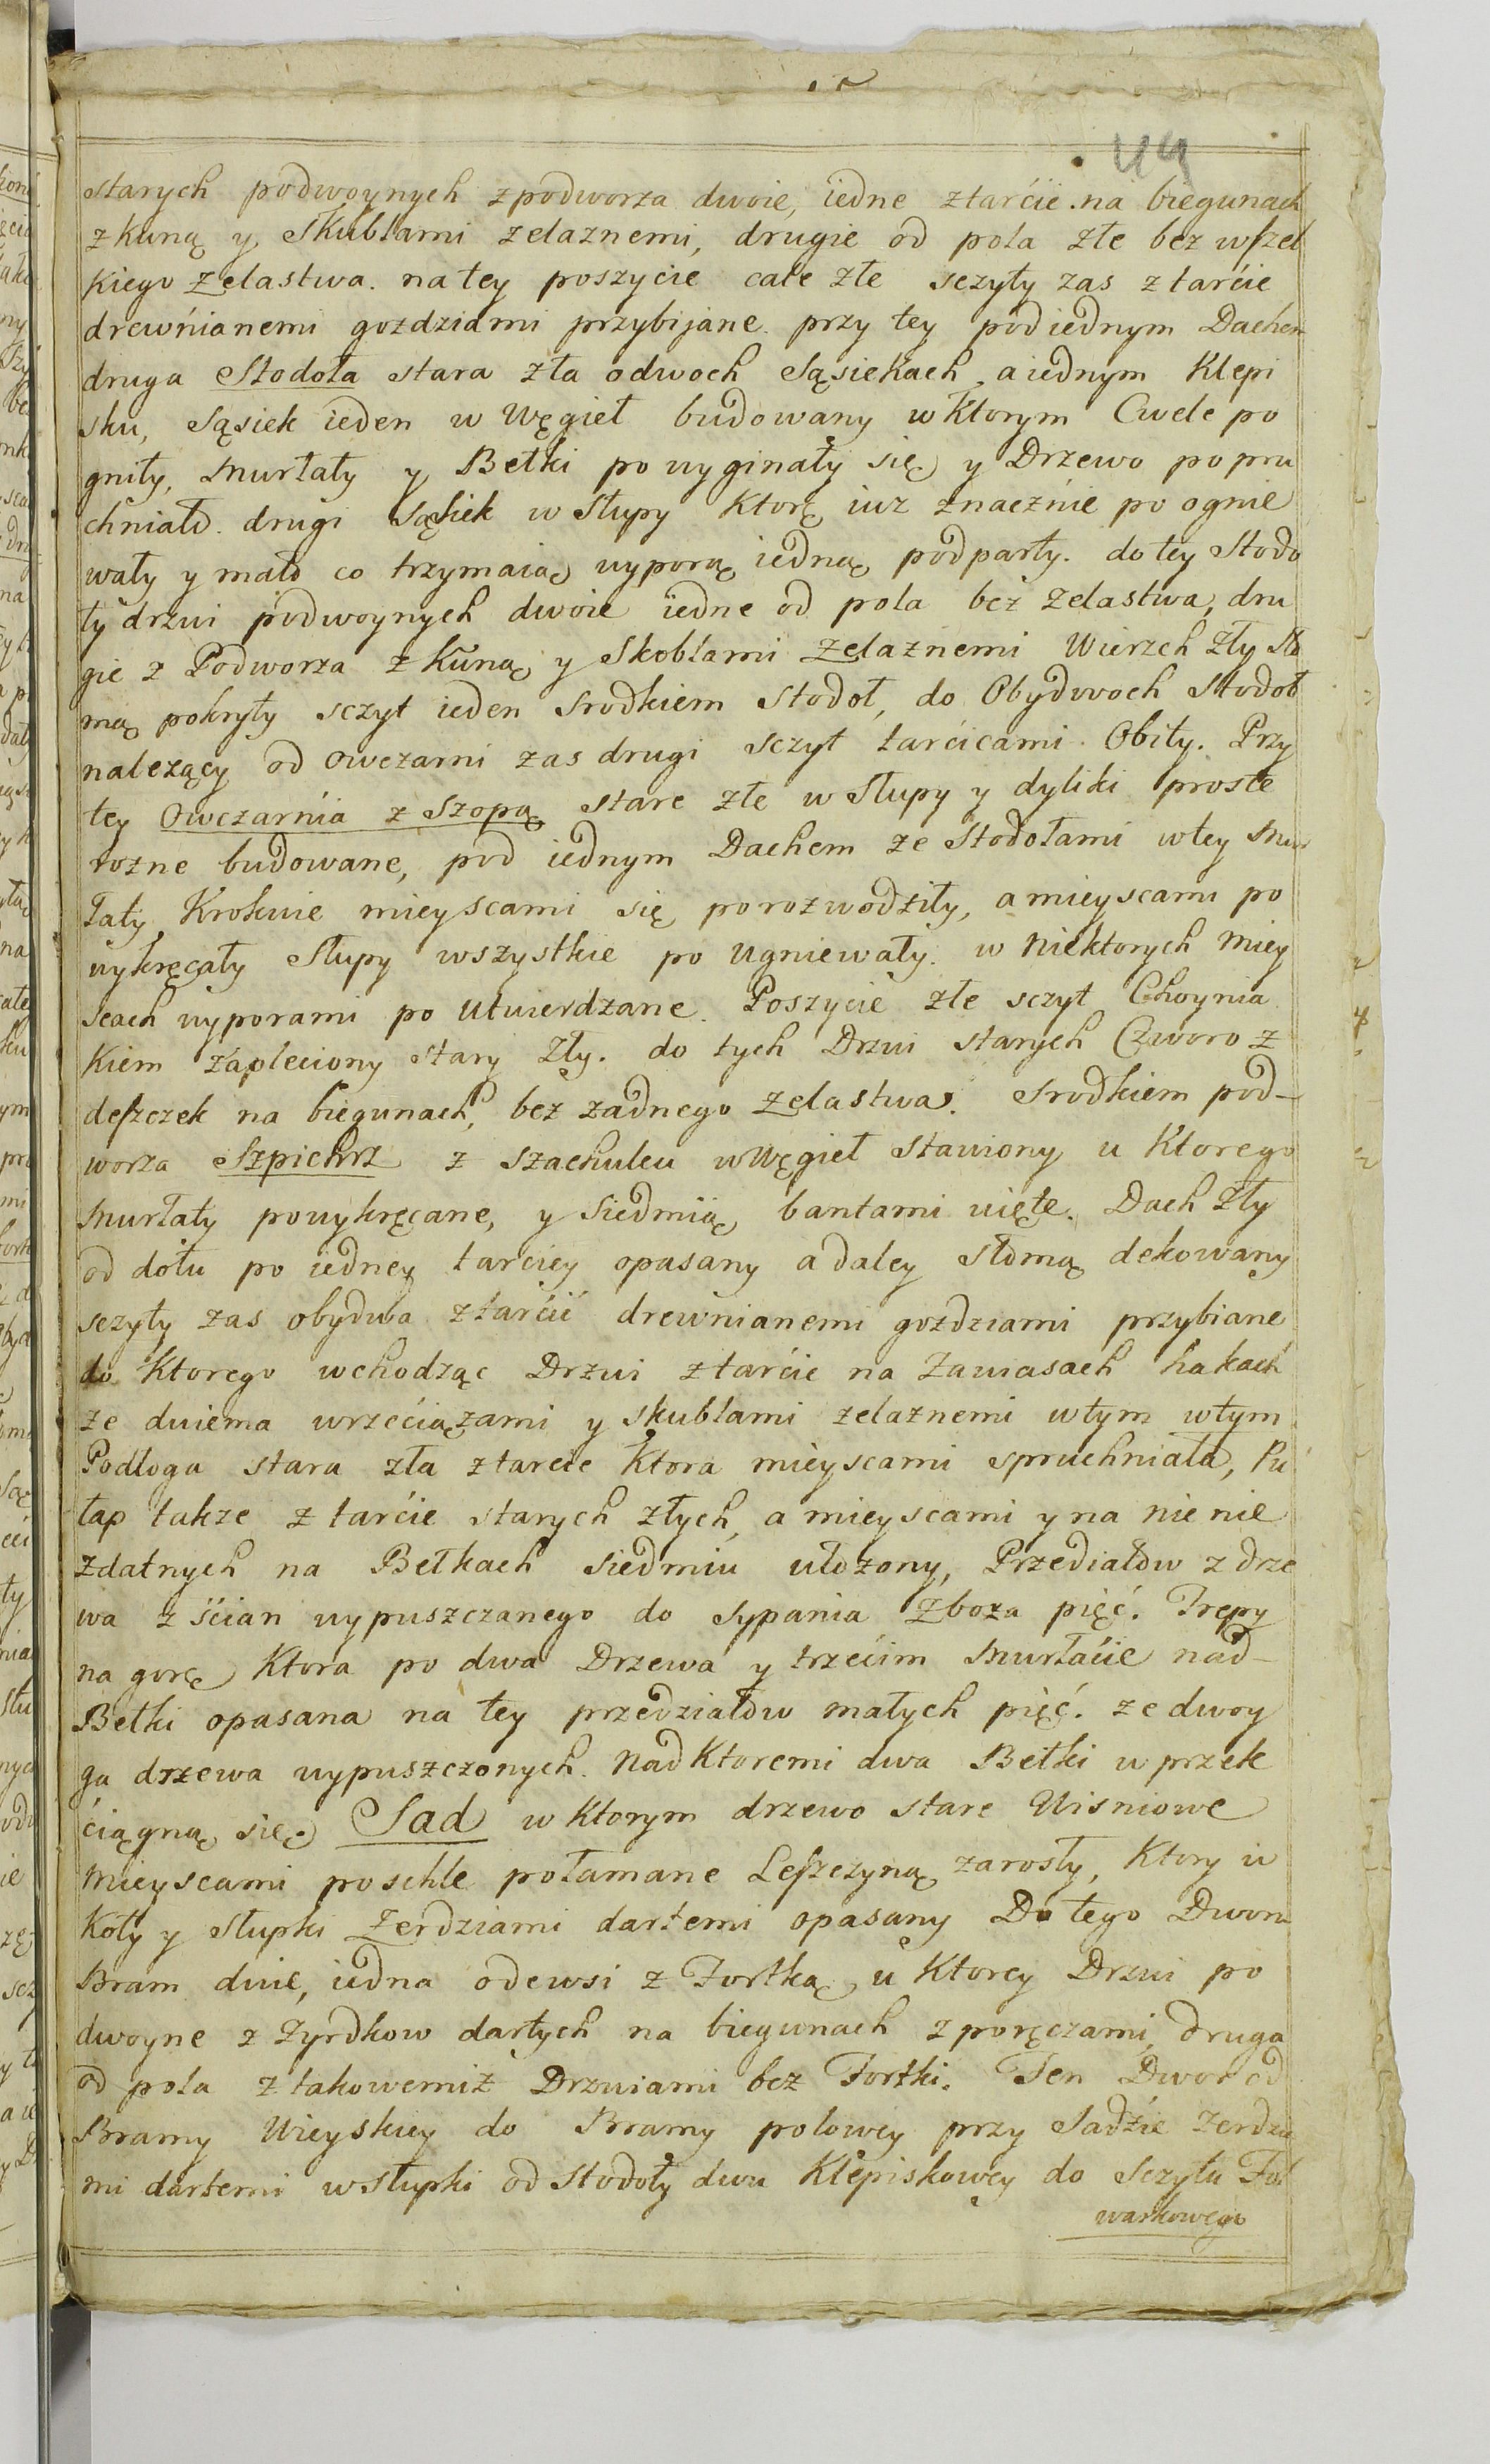 49
starych podwoynych z podworza dwoie, iedne z tarcic na biegunach
z kuną y skublami zelaznemi, drugie od pola złe bez wszel
kiego Zelastwa. na tey poszycie całe złe sczyty zas z tarcic
drewnianemi gozdziami przybijane. przy tey pod iednym Dachem
druga Stodoła stara zła o dwoch Sąsiekach, a iednym Klepi
sku, Sąsiek ieden w Węgieł budowany w Ktorym Cwele po
gniły, Murłaty y Bełki powyginały się y Drzewo popru
chniało. drugi Sąsiek w Słupy Ktore iuz znacznie po ognie
wały y mało co trzymaią wyporą iedną podparły. do tey Stodo
ły drzwi podwoynych dwoie iedne od pola bez zelastwa, dru
gie z Podworza z Kuną y Skoblami Zelaznemi Wierzch zły Sło
mą pokryty sczyt ieden srodkiem stodoł, do Obydwoch Stodoł
nalezący od owczarni zas drugi sczyt tarcicami Obity. Przy
tey Owczarnia z Szopą stare złe w Słupy y dyliki proste
rozne budowane, pod iednym Dachem ze Stodołami w tey Mur
łaty Krokwie mieyscami się porozwodziły, a mieyscami po
wykręcały Słupy wszystkie po Ugniewały. w Niektorych Miey
scach wyporami po Utwierdzane. Poszycie złe sczyt Choynia
kiem zapleciony stary Zły. do tych Drzwi starych Czworo z
deszczek na biegunach, bez zadnego Zelastwa. Srodkiem pod-
worza Szpichrz z szachulcu w Węgieł Stawiony u Ktorego
Murłaty powykręcane, y Siedmią bantami uięte. Dach Zły
od dołu po iedney tarcicy opasany a daley Słomą dekowany
sczyty zas obydwa z tarcic drewnianemi gozdziami przybiane
do Ktorego wchodząc Drzwi z tarcic na Zawiasach hakach
ze dwiema wrzeciązami y skublami zelaznemi w tym w tym
Podłoga stara zła z tarcic Ktora mieyscami spruchniała, Pu
łap takze z tarcic starych złych, a mieyscami y na nic nie
zdatnych na Bełkach Siedmiu ułozony, Przediałow z drze
wa z ścian wypuszczanego do Sypania Zboza pięć. Trepy
na gorę Ktora po dwa Drzewa y trzecim Murłacie nad-
Bełki opasana na tey przedziałow małych pięć. ze dwoy
ga drzewa wypuszczonych. Nad Ktoremi dwa Bełki w przek
ciągną się. Sad w Ktorym drzewo stare Wisniowe
mieyscami poschłe połamane Leszczyną zarosły, Ktory w
Koły y Słupki Zerdziami dartemi opasany Do tego Dworu
Bram dwie, iedna ode wsi z Fortką, u Ktorey Drzwi po
dwoyne z Zyrdkow dartych na biegunach z poręczami, druga
od pola z takowemiz Drzwiami bez Fortki. Ten Dwor od
Bramy Wieyskiey do Bramy polowey przy Sadzie zerdzia
mi dartemi w Słupki od Stodoły dwu Klepiskowey do Sczytu Fol
warkowego